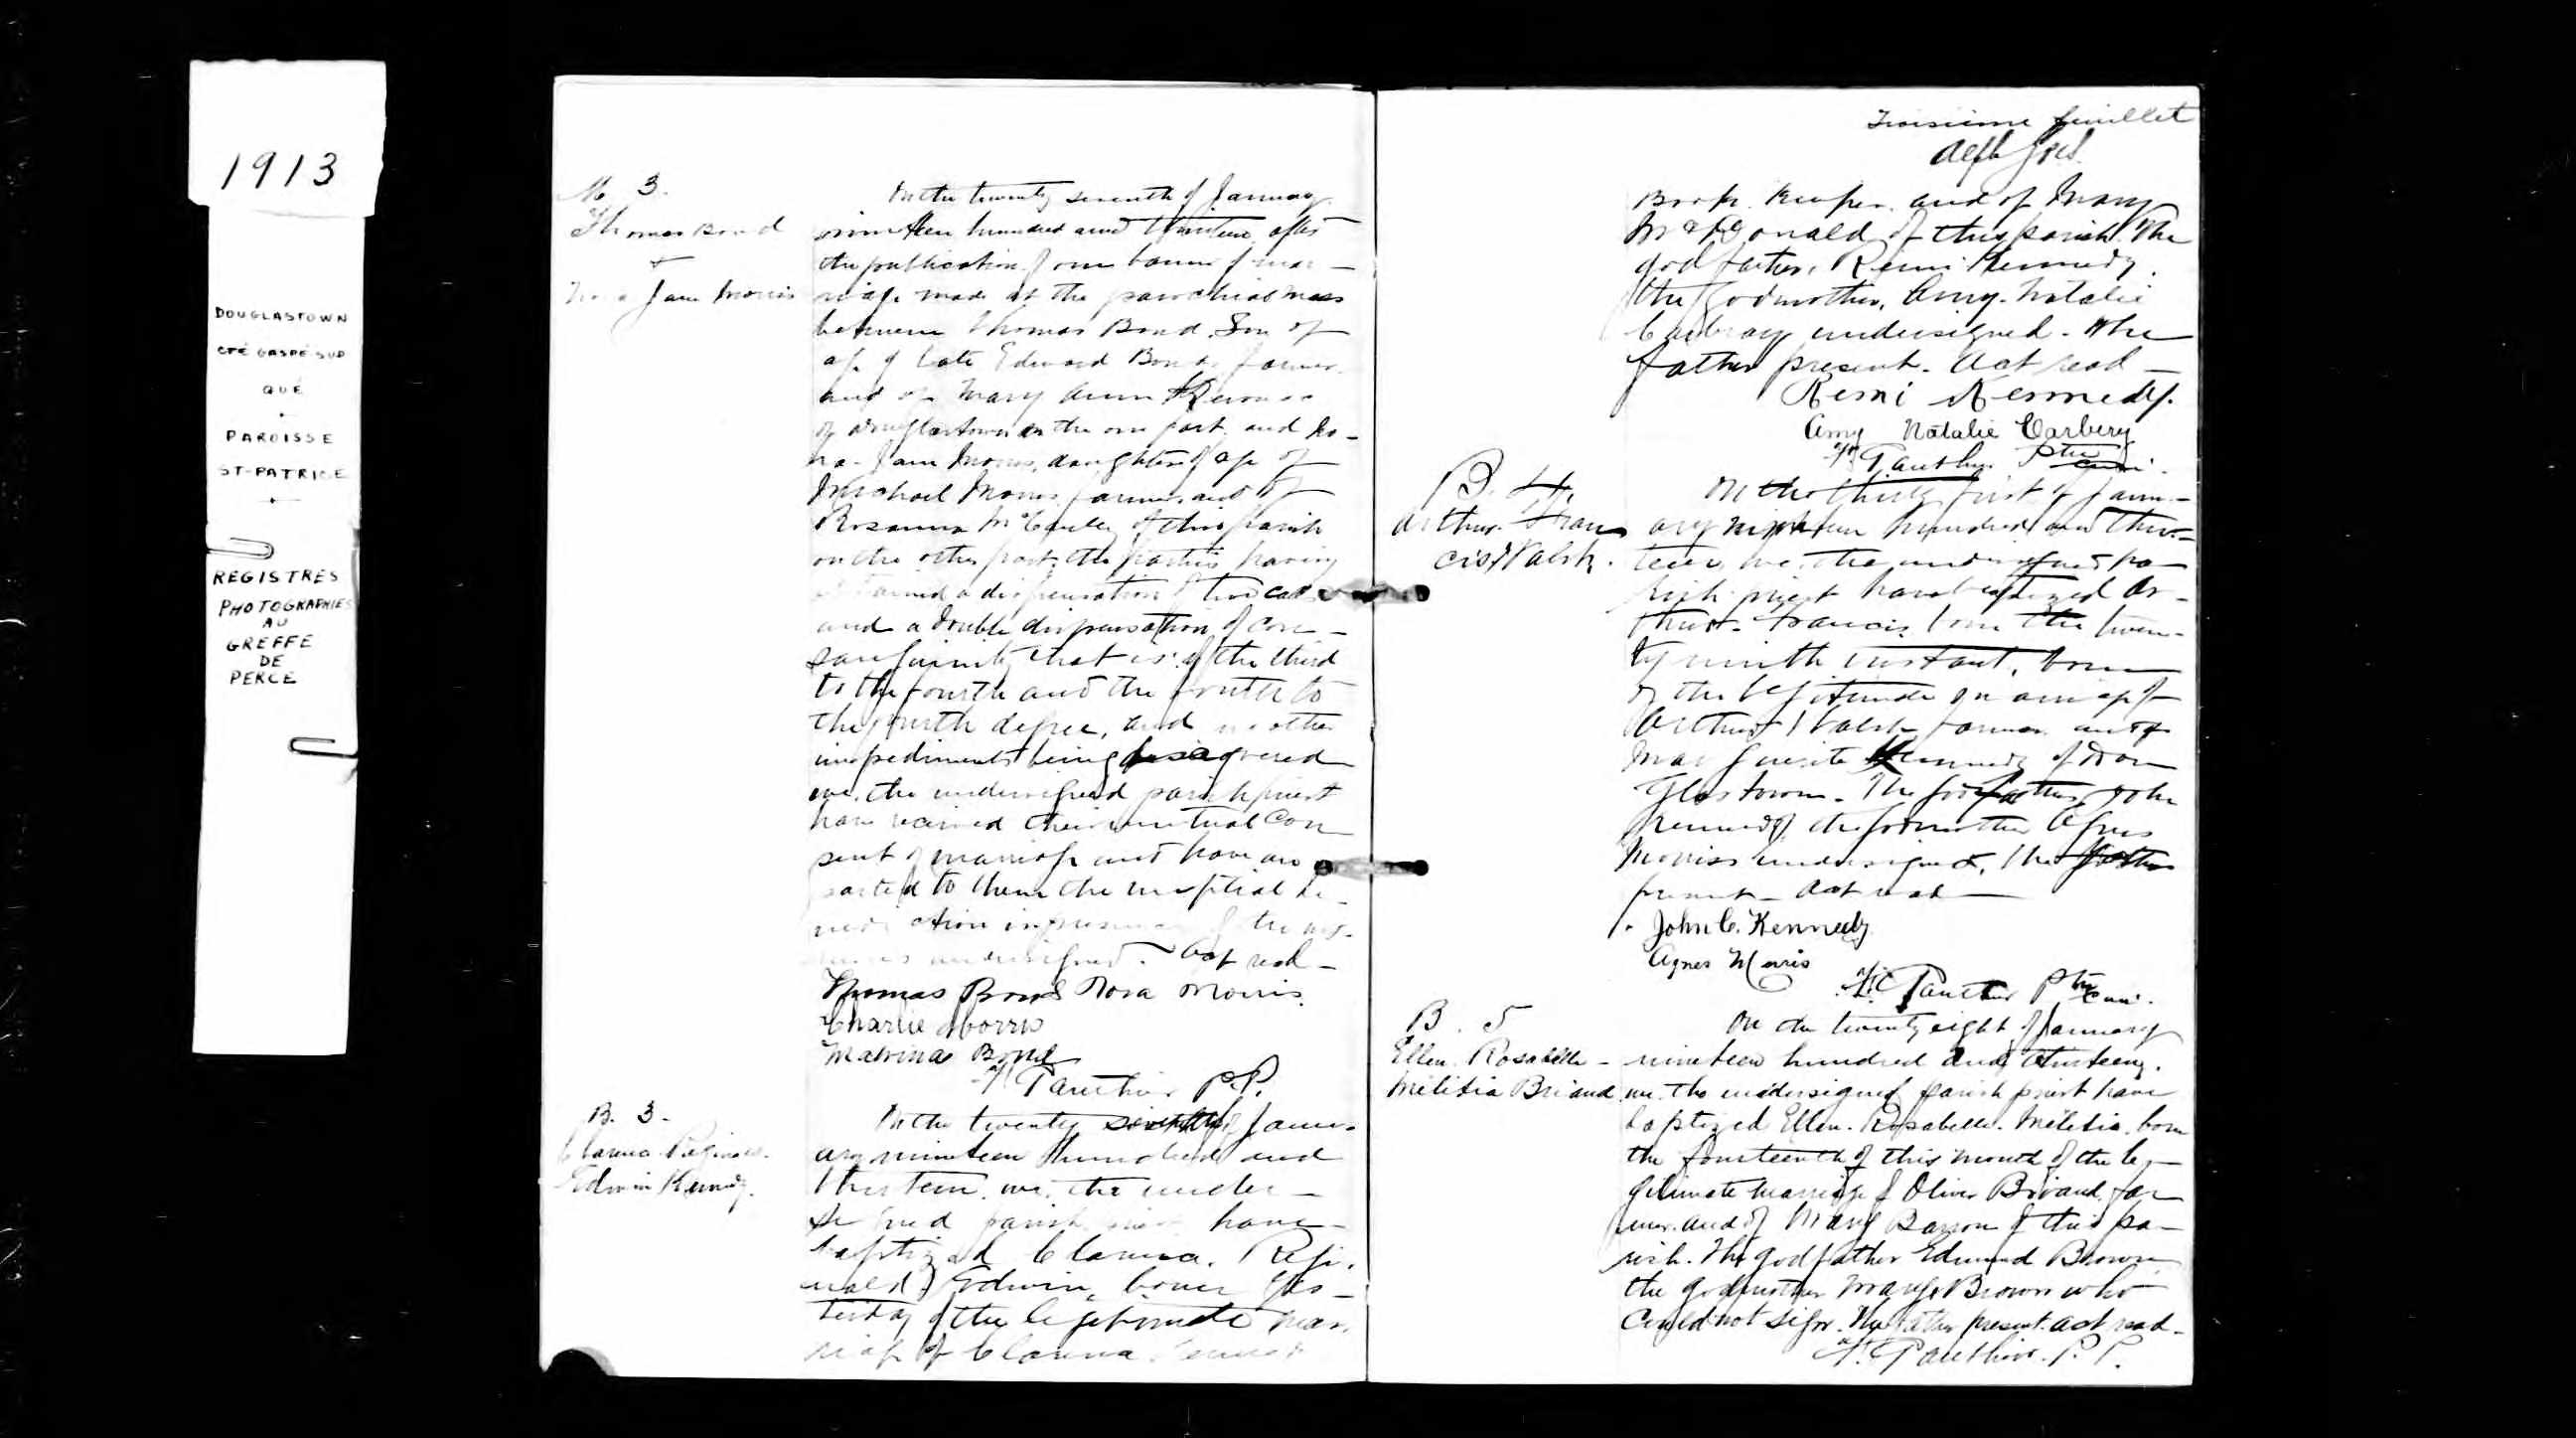 1913
DOUGLASTOWN
CTÉ GASPÉ SUD
QUÉ
PAROISSE
ST-PATRICE
REGISTRES
PHOTOGRAPHIES
AU
GREFFE
DE
PERCE
M 3.
Thomas Bond
+
Jane Morris
On the twenty seventh of January
nineteen hundred and thirteen after
the publication of one bann of mar-
riage made at the parochial mass
between Thomas Bond. Son of
age of late Edward Bond, farmer
and of Mary Ann
of Douglastown on the one part, and No-
ra Jane Morris, daughter of age of
Michael Morris farmer and of
Rosanna McCauley of this parish
on the other part, the parties having
obtained a dispensation of two
and a double dispensation of con-
sanguinity that is of the third
to the fourth and the fourth to
the fourth degree, and no other
impediments being discovered
we, the undersigned parish priest
have received their mutual con
sent of marriage and have im
parted to them the nuptial be-
nediction in presence of the wit-
nesses undersigned. Act read-
Thomas Bond Nora Morris.
Charlie Morris
Malvina Bond
P.P.
B. 3-
Clarence Reginald.
Edwin Kennedy.
On the twenty seventh of Janu-
ary nineteen hundred and
thirteen, we, the under-
signed parish priest have
baptized Clarence. Regi.
nald Edwin, born yes-
terday of the legitimate mar.
riage of Clarence Kennedy
Troisième feuillet
Book Keeper and of Mary
McDonald of this parish. The
godfather, Remi Kennedy.
the godmother, Amy. Natalie
Carbery undersigned. The
father present. Act read-
Remi Kennedy.
Amy Natalie Carbery
Ptre
curé.
B. 4.
Arthur. Fran
cis Walsh.
On the thirty first of Janu-
ary nineteen hundred and thir-
teen, we, the undersigned pa-
rish priest have baptized Ar-
thur. Francis born the twen-
ty ninth instant, born
of the legitimate marriage of
Arthur Walsh farmer and of
Marguerite Kennedy of Dou
glastown. The godfather John
Kennedy. the godmother Agnes
Morriss undersigned, the father
present- Act read-
John C. Kennedy
Agnes Morris
Ptre curé.
B. 5
Ellen. Rosabelle-
Melitia Briand
On the twenty eight of January
nineteen hundred and thirteen,
we the undersigned parish priest have
baptized Ellen. Rosabelle. Melitia. born
the fourteenth of this month of the le-
gitimate marriage of Oliver Briand, far
mer. and of Mary Baron of this pa-
rish. The godfather Edmund Brown
the godmother Mary Brown who
could not sign. The father present. act read-
P. P.